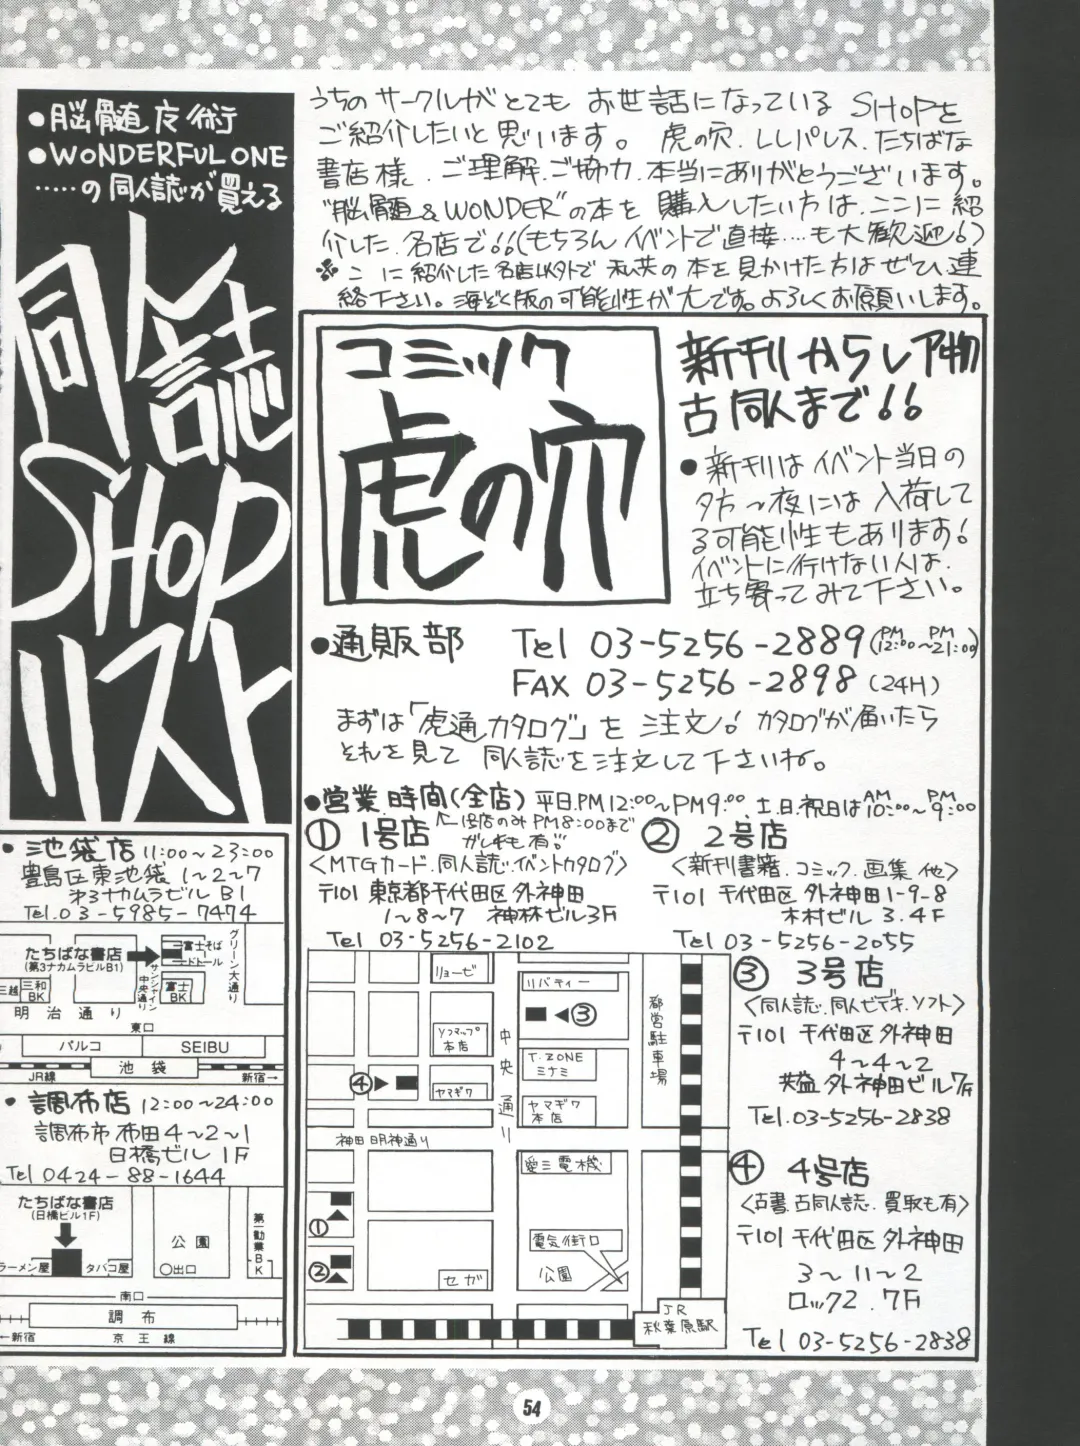 ●脳髄皮術
●WONDERFUL ONE
‥‥‥の同人誌が買える
同人誌
SHOP
リスト
うちのサークルがとてもお世話になっているSHOPを
ご紹介したいと思います。虎の穴.ししパレス.たちばな
書店様.ご理解.ご協力.本当にありがとうございます。
"脳髄&WONDER"の本を購入したい方は.ここに紹
介した.名店で!!(もちろんイベントで直接‥‥も大歓迎!)
※ここに紹介した名店以外で私共の本を見かけた方はぜひ連
絡下さい。海ぞく版の可能性が大です。よろしくお願いします。
コミック
虎の穴
新刊からレア物
古同人まで!!
●新刊はイベント当日の
夕方〜夜には入荷して
る可能性もあります!
イベントに行けない人は.
立ち寄ってみて下さい。
●通販部 Tel 03-5256-2889(PM12:00〜PM21:00)
FAX 03-5256-2898(24H)
まずは「虎通カタログ」を注文!カタログが届いたら
それを見て同人誌を注文して下さいね。
●営業時間(全店)平日.PM12:00〜PM9:00.土.日.祝日はAM10:00〜PM9:00
① 1号店
1号店のみPM8:00まで
〈MTGカード.同人誌.イベントカタログ〉
〒101 東京都千代田区外神田
1〜8〜7 神林ビル3F
Tel 03-5256-2102
② 2号店
〈新刊書籍.コミック.画集.他〉
〒101 千代田区外神田1-9-8
木村ビル3.4F
Tel 03-5256-2055
③ 3号店
〈同人誌.同人ビデオ.ソフト〉
〒101 千代田区外神田
4〜4〜2
共益外神田ビル7F
Tel.03-5256-2838
④ 4号店
〈古書.古同人誌.買取も有〉
〒101 千代田区外神田
3〜11〜2
ロック2.7F
Tel 03-5256-2838
リョービ
リバティー
ソフマップ
本店
中央通り
③
T.ZONE
ミナミ
都営駐車場
④
ヤマギワ
ヤマギワ
本店
神田明神通り
愛三電機
①
②
電気街口
公園
セガ
JR
秋葉原駅
●池袋店 11:00〜23:00
豊島区東池袋1〜2〜7
第3ナカムラビルB1
Tel.03-5985-7474
たちばな書店
(第3ナカムラビルB1)
富士そば
ドトール
グリーン大通り
サンシャイン
中央通り
富士
BK
三越
三和
BK
明治通り
東口
パルコ
SEIBU
池袋
JR線
新宿→
●調布店 12:00〜24:00
調布市布田4〜2〜1
日橋ビル1F
Tel 0424-88-1644
たちばな書店
(日橋ビル1F)
公園
第一勧業BK
ラーメン屋
タバコ屋
○出口
南口
調布
←新宿
京王線
54